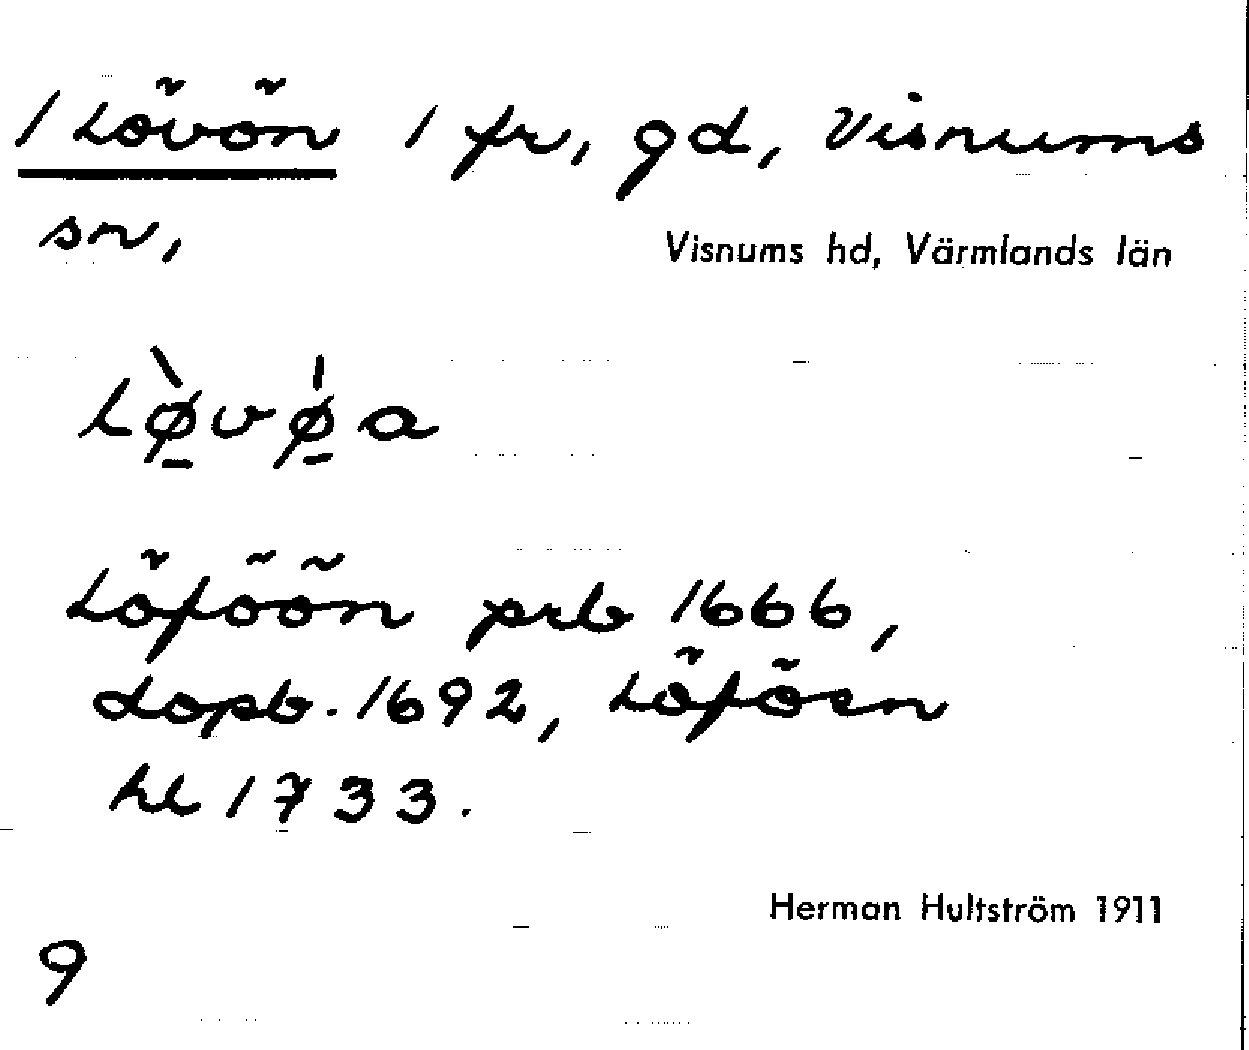 1 Lövön 1 fr, gd, Visnums
sn,
Visnums hd, Värmlands län
Lø̱̀vǿ̱a
Löföön prb 1666,
dopb. 1692, Löföen
hl 1733.
Herman Hultström 1911
9